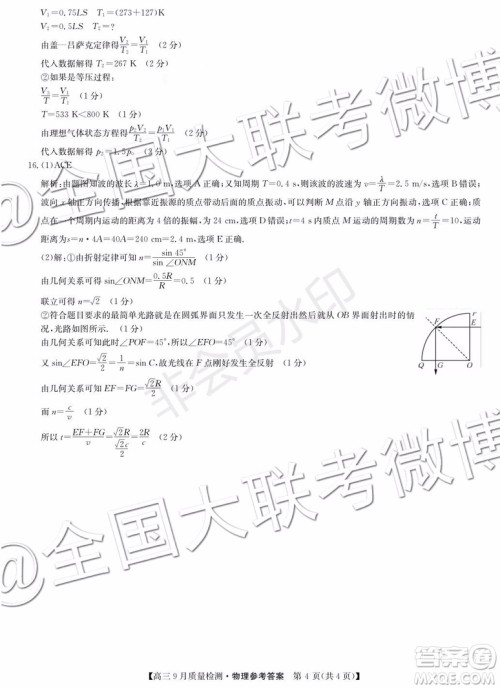 V₁=0.75LS　T₁=(273+127)K
V₂=0.5LS　T₂=?
由盖—吕萨克定律得V₂/T₂=V₁/T₁　(2分)
代入数据解得T₂=267 K　(2分)
②如果是等压过程:
V₂/T=V₁/T₁　(1分)
T=533 K<800 K　(1分)
由理想气体状态方程得p₂V₂/T₂=p₁V₁/T₁　(2分)
代入数据解得p₂=1.5p₀　(2分)
16.(1)ACE
解析:由题图知波的波长λ=1.0 m,选项A正确;又周期T=0.4 s,则该波的波速v=λ/T=2.5 m/s,选项B错误;
波向x轴正方向传播,根据靠近振源的质点带动后振动的质点知,t=0时刻质点M正沿y轴负方向运动,选项C
正确;质点M在一个周期内运动的路程为4倍的振幅,为24 cm,选项D错误;t=4 s内质点M运动的周期数为n=t/T=10,运
动路程为s=n·4A=40A=240 cm=2.4 m,选项E正确.
(2)解:①由折射定律可知n=sin 45°/sin∠ONM　(2分)
由几何关系可得sin∠ONM=0.5R/R=0.5　(1分)
联立可得n=√2　(1分)
②符合题目要求的最简单光路就是在圆弧界面只发生一次全反射出然后就从OB界面射出时的情
况,光路如图所示.　(1分)
由几何关系可知此时∠POF=45°　(1分)
又sin∠EFO=√2/2=1/n=sin C,故光线在F点刚好发生全反射　(1分)
由几何关系可知EF=FG=√2R/2　(1分)
而n=c/v　(1分)
所以t=(EF+FG)/v=√2R/(√2c/2)=2R/c　(2分)
F
E
P
Q
G
O
【高三9月质量检测·物理参考答案　第4页(共4页)】
@全国大联考微博
@全国大联考微博
非会员水印